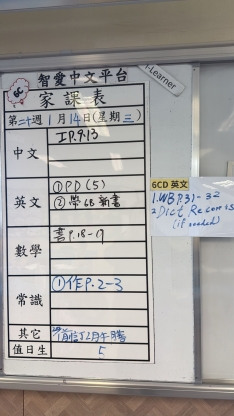 i-Learner
智愛中文平台
家課表
第二十週 1月14日(星期三)
中文
IP.9.13
英文
① PD (5)
② 學68 新書
數學
書P.18-19
常識
① 作P.2-3
其它
值日生
5
6CD 英文
1. WB P.31-32
2. Dict
(if needed)